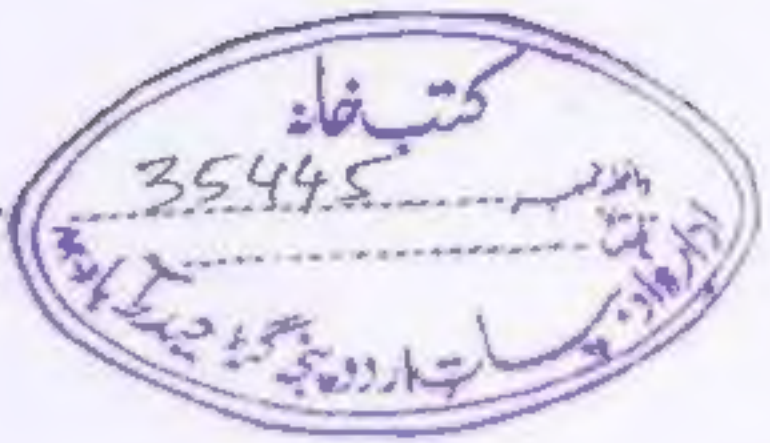 کتب خانہ
35445
ادارہ ادبیات اردو پنجہ گٹہ حیدرآباد